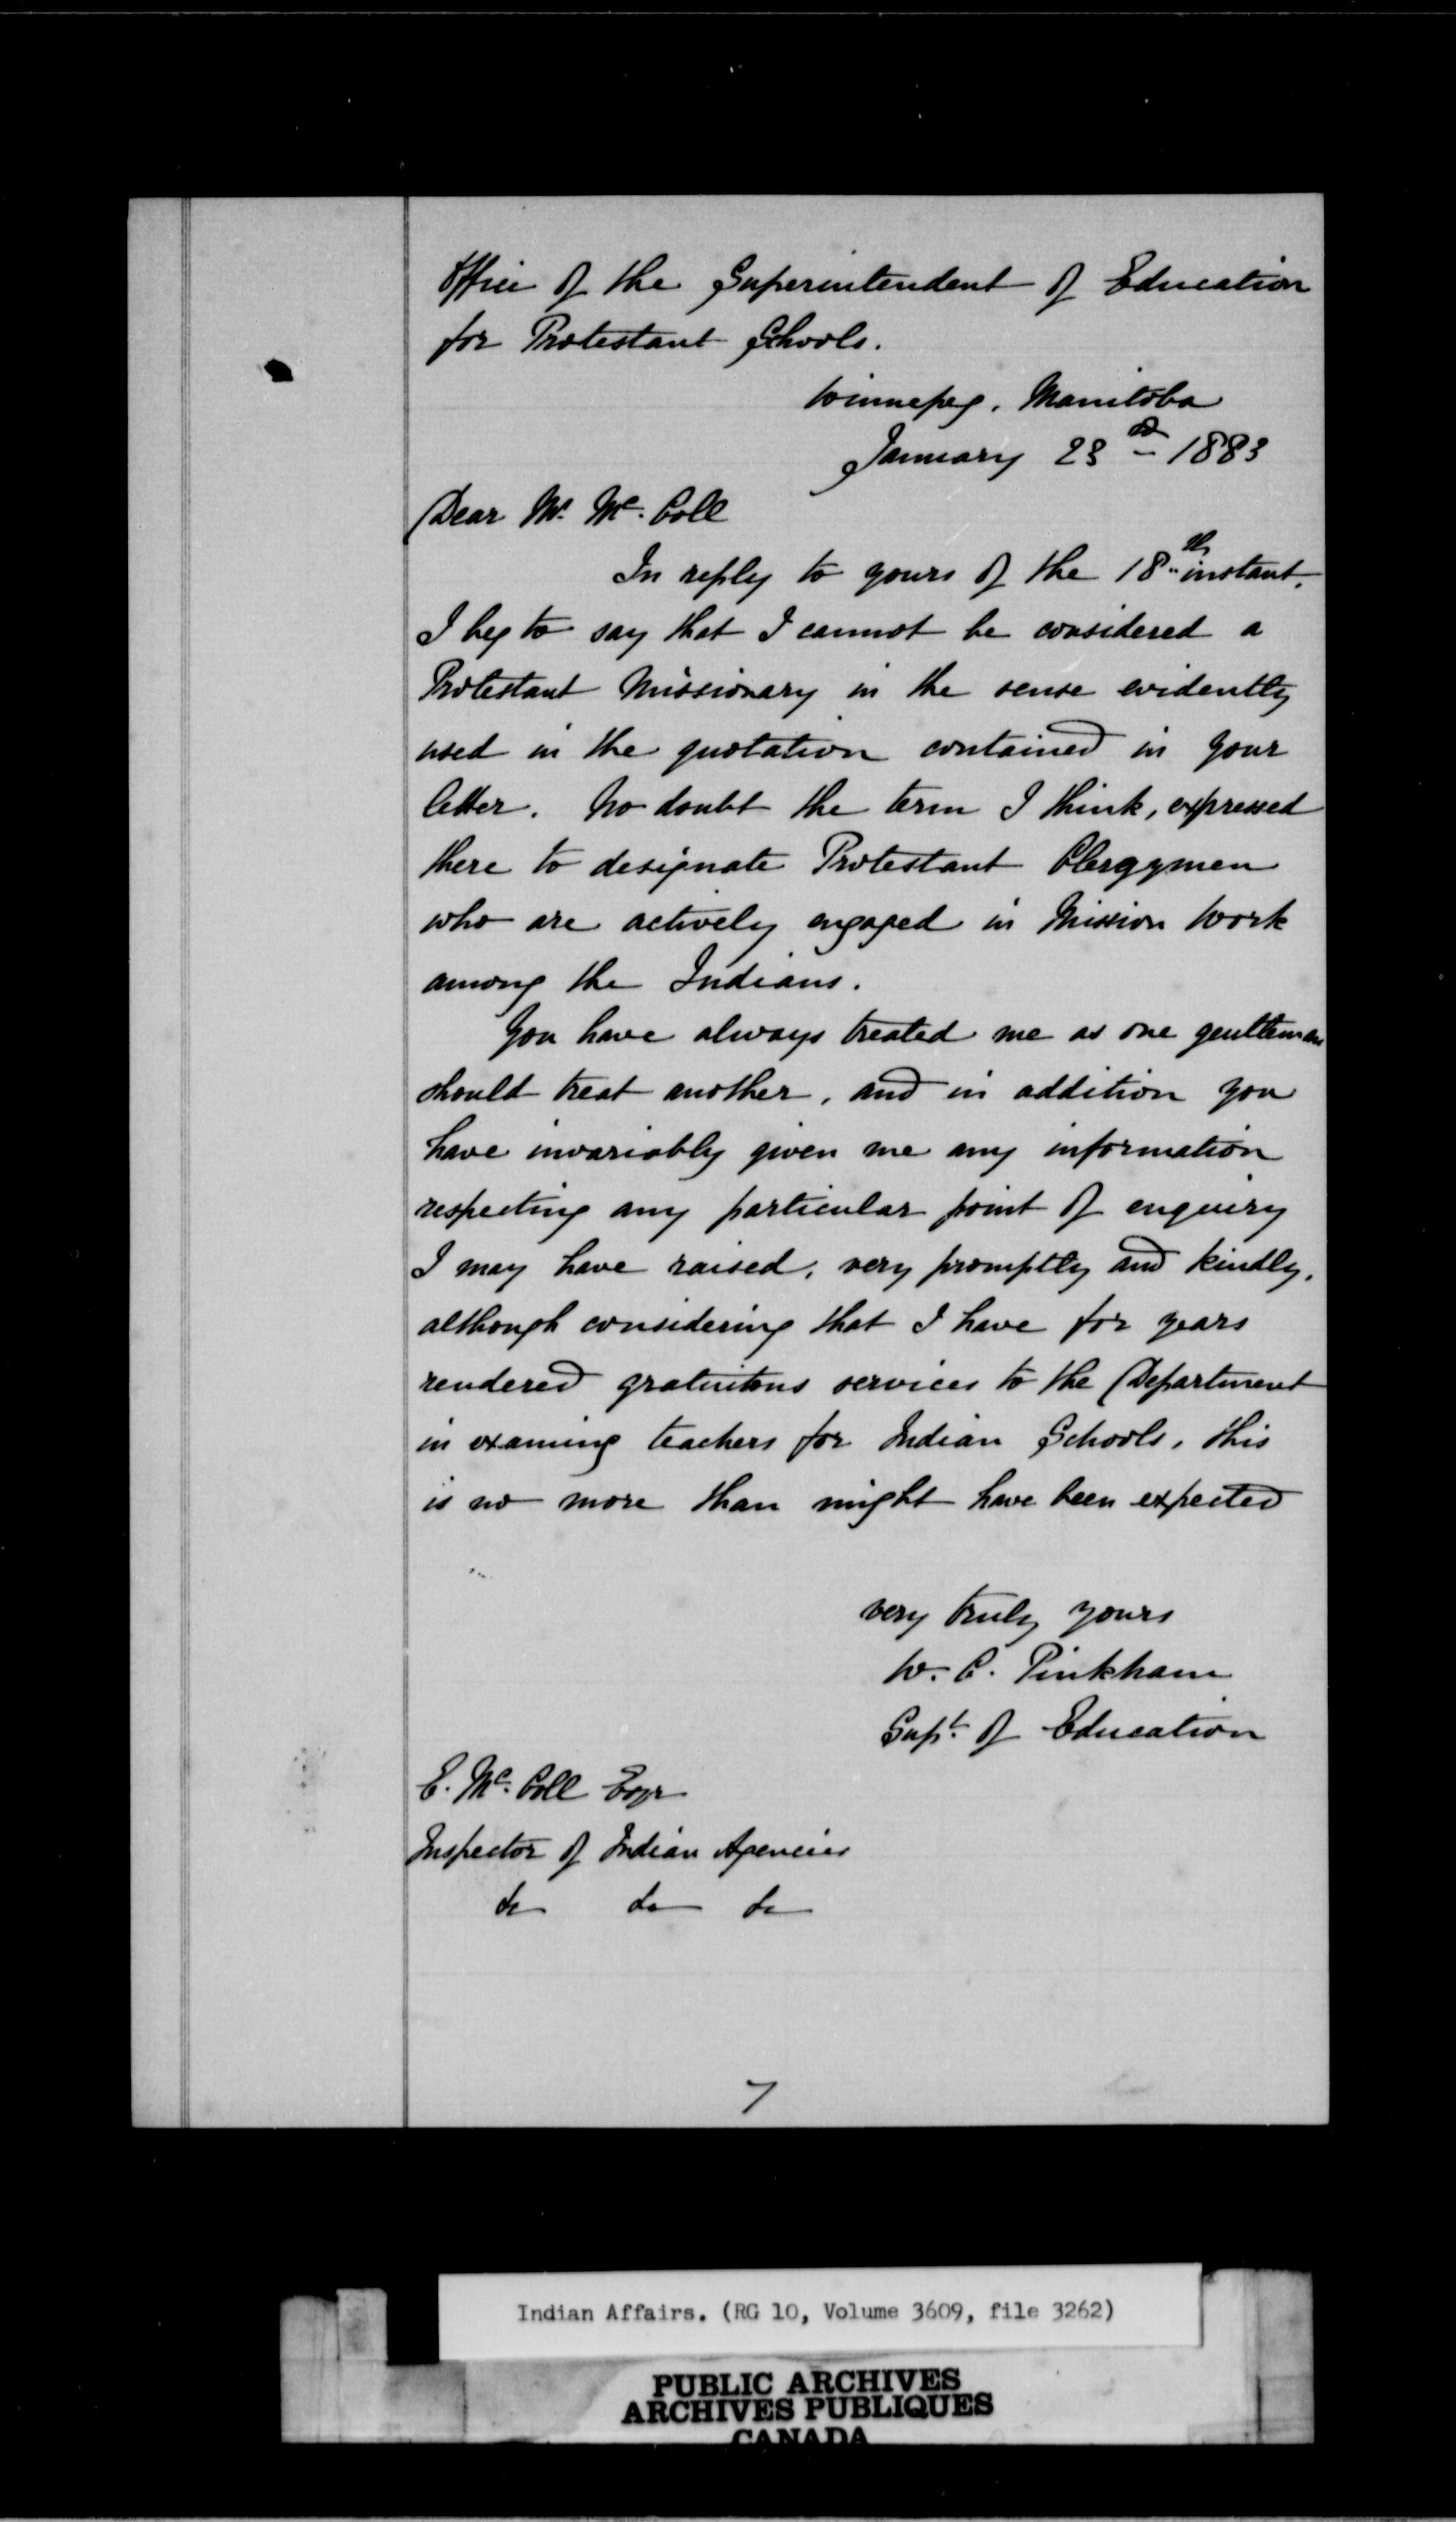 Office of the Superintendent of Education
for Protestant Schools.
Winnepeg, Manitoba
January 23d 1883
Dear Mr. Mc. Coll
In reply to yours of the 18th instant,
I beg to say that I cannot be considered a
Protestant Missionary in the sense evidently
used in the quotation contained in your
letter. No doubt the term I think, expressed
there to designate Protestant Clergymen
who are actively engaged in Mission work
among the Indians.
You have always treated me as one gentleman
should treat another, and in addition you
have invariably given me any information
respecting any particular point of enquiry
I may have raised, very promptly and kindly,
although considering that I have for years
rendered gratuitous services to the Department
in examing teachers for Indian Schools, this
is no more than might have been expected
very truly yours
W. C. Pinkham
Supt. of Education
E. Mc. Coll Esqr
Inspector of Indian Agencies
&c &c &c
7
Indian Affairs. (RG 10, Volume 3609, file 3262)
PUBLIC ARCHIVES
ARCHIVES PUBLIQUES
CANADA